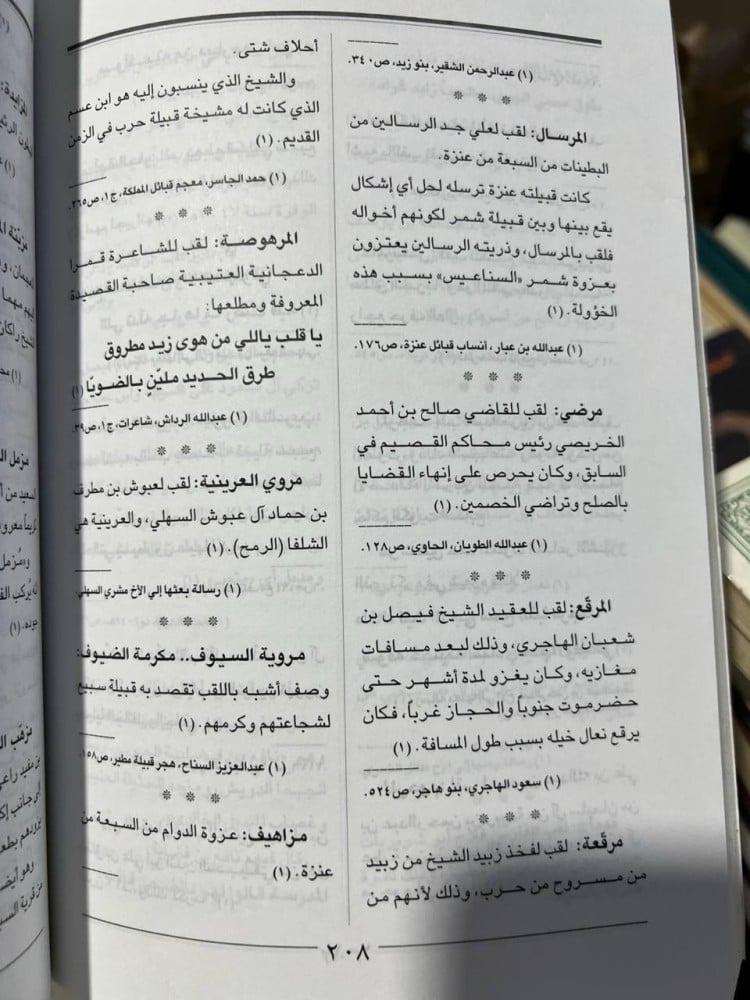 (١) عبدالرحمن الشقير، بنو زيد، ص٣٤٠.
* * *
المرسال: لقب لعلي جد الرسالين من
البطينات من السبعة من عنزة.
كانت قبيلته عنزة ترسله لحل أي إشكال
يقع بينها وبين قبيلة شمر لكونهم أخواله
فلقب بالمرسال، وذريته الرسالين يعتزون
بعزوة شمر «السناعيس» بسبب هذه
الخؤولة. (١)
(١) عبدالله بن عبار، أنساب قبائل عنزة، ص١٧٦.
* * *
مرضي: لقب للقاضي صالح بن أحمد
الخريصي رئيس محاكم القصيم في
السابق، وكان يحرص على إنهاء القضايا
بالصلح وتراضي الخصمين. (١)
(١) عبدالله الطويان، الحاوي، ص١٢٨.
* * *
المرقّع: لقب للعقيد الشيخ فيصل بن
شعبان الهاجري، وذلك لبعد مسافات
مغازيه، وكان يغزو لمدة أشهر حتى
حضرموت جنوباً والحجاز غرباً، فكان
يرقع نعال خيله بسبب طول المسافة. (١)
(١) سعود الهاجري، بنو هاجر، ص٥٢٤.
* * *
مرقّعة: لقب لفخذ زبيد الشيخ من زبيد
من مسروح من حرب، وذلك لأنهم من
أحلاف شتى.
والشيخ الذي ينسبون إليه هو ابن عسم
الذي كانت له مشيخة قبيلة حرب في الزمن
القديم. (١)
(١) حمد الجاسر، معجم قبائل المملكة، ج١، ص٢٦٥.
* * *
المرهوصة: لقب للشاعرة قمرا
الدعجانية العتيبية صاحبة القصيدة
المعروفة ومطلعها:
يا قلب ياللي من هوى زيد مطروق
طرق الحديد مليّنٍ بالضويّا (١)
(١) عبدالله الرداش، شاعرات، ج١، ص٣٩.
* * *
مروي العرينية: لقب لعبوش بن مطرف
بن حماد آل عبوش السهلي، والعرينية هي
الشلفا (الرمح). (١)
(١) رسالة بعثها إلي الأخ مشري السهلي.
* * *
مروية السيوف.. مكرمة الضيوف:
وصف أشبه باللقب تقصد به قبيلة سبيع
لشجاعتهم وكرمهم. (١)
(١) عبدالعزيز السناح، هجر قبيلة مطير، ص١٥٨.
* * *
مزاهيف: عزوة الدوام من السبعة من
عنزة. (١)
٢٠٨